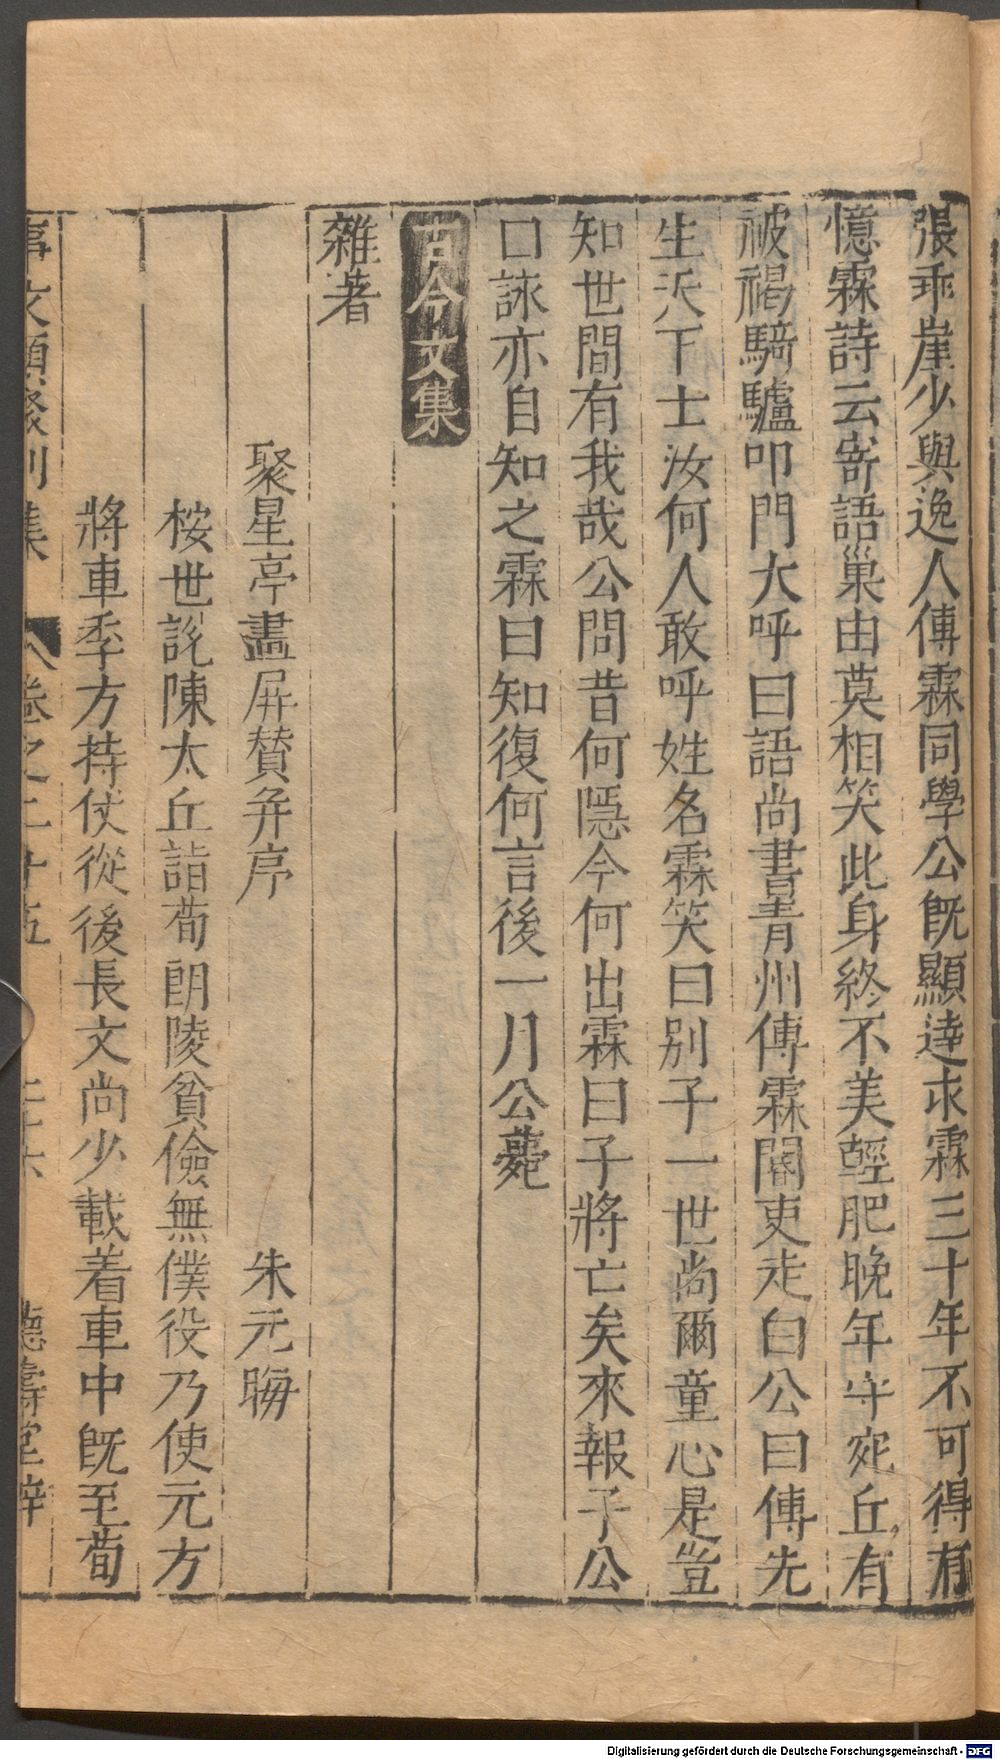 張乖崖少與逸人傅霖同學公既顯達求霖三十年不可得有
憶霖詩云寄語巢由莫相笑此身終不美輕肥晚年守宛丘有
被褐騎驢叩門大呼曰語尚書青州傅霖閽吏走白公曰傅先
生天下士汝何人敢呼姓名霖笑曰别子一世尚爾童心是豈
知世間有我哉公問昔何隠今何出霖曰子將亡矣來報子公
口詠亦自知之霖曰知復何言後一月公薨
古今文集
雜著
聚星亭畫屏賛并序 朱元晦
桉世説陳太丘詣荀朗陵貧儉無僕役乃使元方
將車季方持仗從後長文尚少載着車中既至荀
事文類聚别集 卷之二十五 二十六 德壽堂梓
Digitalisierung gefördert durch die Deutsche Forschungsgemeinschaft - DFG